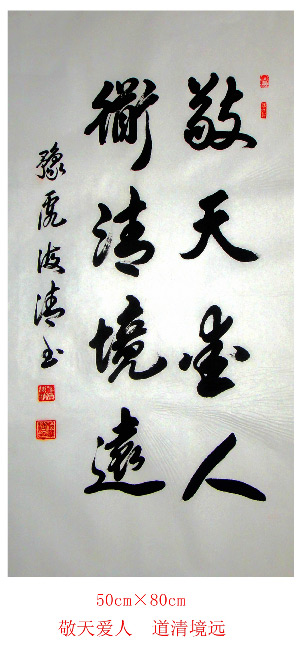 敬天愛人
衜清境遠
豫 清书
50cm×80cm
敬天爱人 道清境远